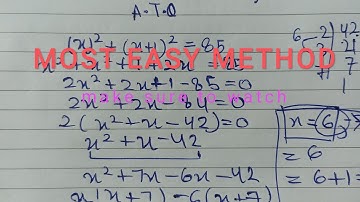 A.T.Q
(x)² + (x+1)² = 85
MOST EASY METHOD
2x² + 2x + 1 - 85 = 0
make sure to watch
2x² + 2x - 84 = 0
2(x² + x - 42) = 0
x² + x - 42
x² + 7x - 6x - 42
x(x+7) - 6(x+7)
6 2 42
21
7
1
x = 6
= 6
= 6+1 =